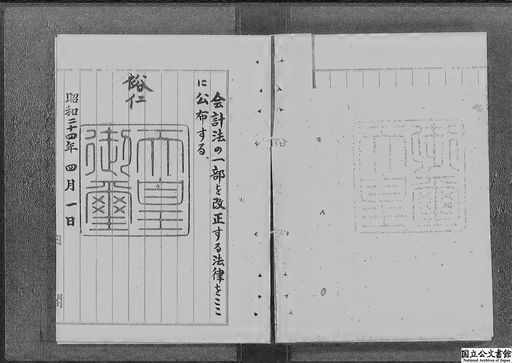 会計法の一部を改正する法律をここ
に公布する、
裕仁
天皇
御璽
昭和二十四年四月一日
国立公文書館
National Archives of Japan